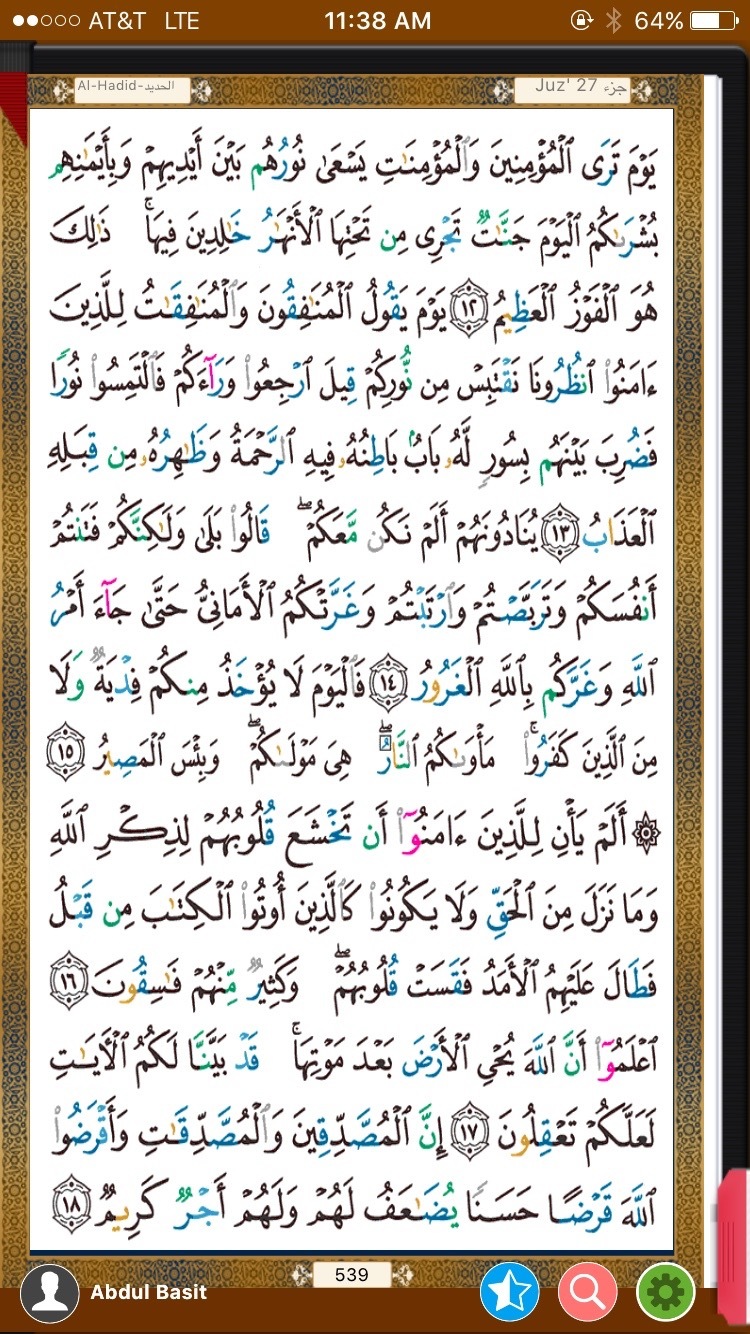 AT&T LTE 11:38 AM 64%
Al-Hadid-الحديد Juz' 27 جزء
يَوْمَ تَرَى ٱلْمُؤْمِنِينَ وَٱلْمُؤْمِنَٰتِ يَسْعَىٰ نُورُهُم بَيْنَ أَيْدِيهِمْ وَبِأَيْمَٰنِهِم
بُشْرَىٰكُمُ ٱلْيَوْمَ جَنَّٰتٌ تَجْرِى مِن تَحْتِهَا ٱلْأَنْهَٰرُ خَٰلِدِينَ فِيهَا ۚ ذَٰلِكَ
هُوَ ٱلْفَوْزُ ٱلْعَظِيمُ ١٢ يَوْمَ يَقُولُ ٱلْمُنَٰفِقُونَ وَٱلْمُنَٰفِقَٰتُ لِلَّذِينَ
ءَامَنُوا۟ ٱنظُرُونَا نَقْتَبِسْ مِن نُّورِكُمْ قِيلَ ٱرْجِعُوا۟ وَرَآءَكُمْ فَٱلْتَمِسُوا۟ نُورًا
فَضُرِبَ بَيْنَهُم بِسُورٍ لَّهُۥ بَابٌۢ بَاطِنُهُۥ فِيهِ ٱلرَّحْمَةُ وَظَٰهِرُهُۥ مِن قِبَلِهِ
ٱلْعَذَابُ ١٣ يُنَادُونَهُمْ أَلَمْ نَكُن مَّعَكُمْ ۖ قَالُوا۟ بَلَىٰ وَلَٰكِنَّكُمْ فَتَنتُمْ
أَنفُسَكُمْ وَتَرَبَّصْتُمْ وَٱرْتَبْتُمْ وَغَرَّتْكُمُ ٱلْأَمَانِىُّ حَتَّىٰ جَآءَ أَمْرُ
ٱللَّهِ وَغَرَّكُم بِٱللَّهِ ٱلْغَرُورُ ١٤ فَٱلْيَوْمَ لَا يُؤْخَذُ مِنكُمْ فِدْيَةٌ وَلَا
مِنَ ٱلَّذِينَ كَفَرُوا۟ ۚ مَأْوَىٰكُمُ ٱلنَّارُ ۖ هِىَ مَوْلَىٰكُمْ ۖ وَبِئْسَ ٱلْمَصِيرُ ١٥
۞ أَلَمْ يَأْنِ لِلَّذِينَ ءَامَنُوٓا۟ أَن تَخْشَعَ قُلُوبُهُمْ لِذِكْرِ ٱللَّهِ
وَمَا نَزَلَ مِنَ ٱلْحَقِّ وَلَا يَكُونُوا۟ كَٱلَّذِينَ أُوتُوا۟ ٱلْكِتَٰبَ مِن قَبْلُ
فَطَالَ عَلَيْهِمُ ٱلْأَمَدُ فَقَسَتْ قُلُوبُهُمْ ۖ وَكَثِيرٌ مِّنْهُمْ فَٰسِقُونَ ١٦
ٱعْلَمُوٓا۟ أَنَّ ٱللَّهَ يُحْىِ ٱلْأَرْضَ بَعْدَ مَوْتِهَا ۚ قَدْ بَيَّنَّا لَكُمُ ٱلْءَايَٰتِ
لَعَلَّكُمْ تَعْقِلُونَ ١٧ إِنَّ ٱلْمُصَّدِّقِينَ وَٱلْمُصَّدِّقَٰتِ وَأَقْرَضُوا۟
ٱللَّهَ قَرْضًا حَسَنًا يُضَٰعَفُ لَهُمْ وَلَهُمْ أَجْرٌ كَرِيمٌ ١٨
539
Abdul Basit